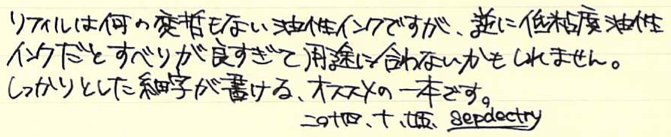 リフィルは何の変哲もない油性インクですが、逆に低粘度油性
インクだとすべりが良すぎて用途に合わないかもしれません。
しっかりとした細字が書ける、オススメの一本です。
二〇十四、十、 sepdectry